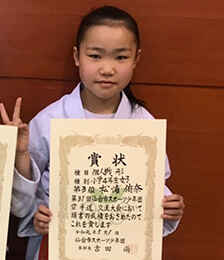 賞状
種目 個人戦 形
種別 小学4年生女子
第3位 松浦 侑奈
第31回仙台市スポーツ少年団
空手道交流大会において
頭書の成績をおさめたので
これを賞します
仙台市スポーツ少年団
本部長 吉田 尚